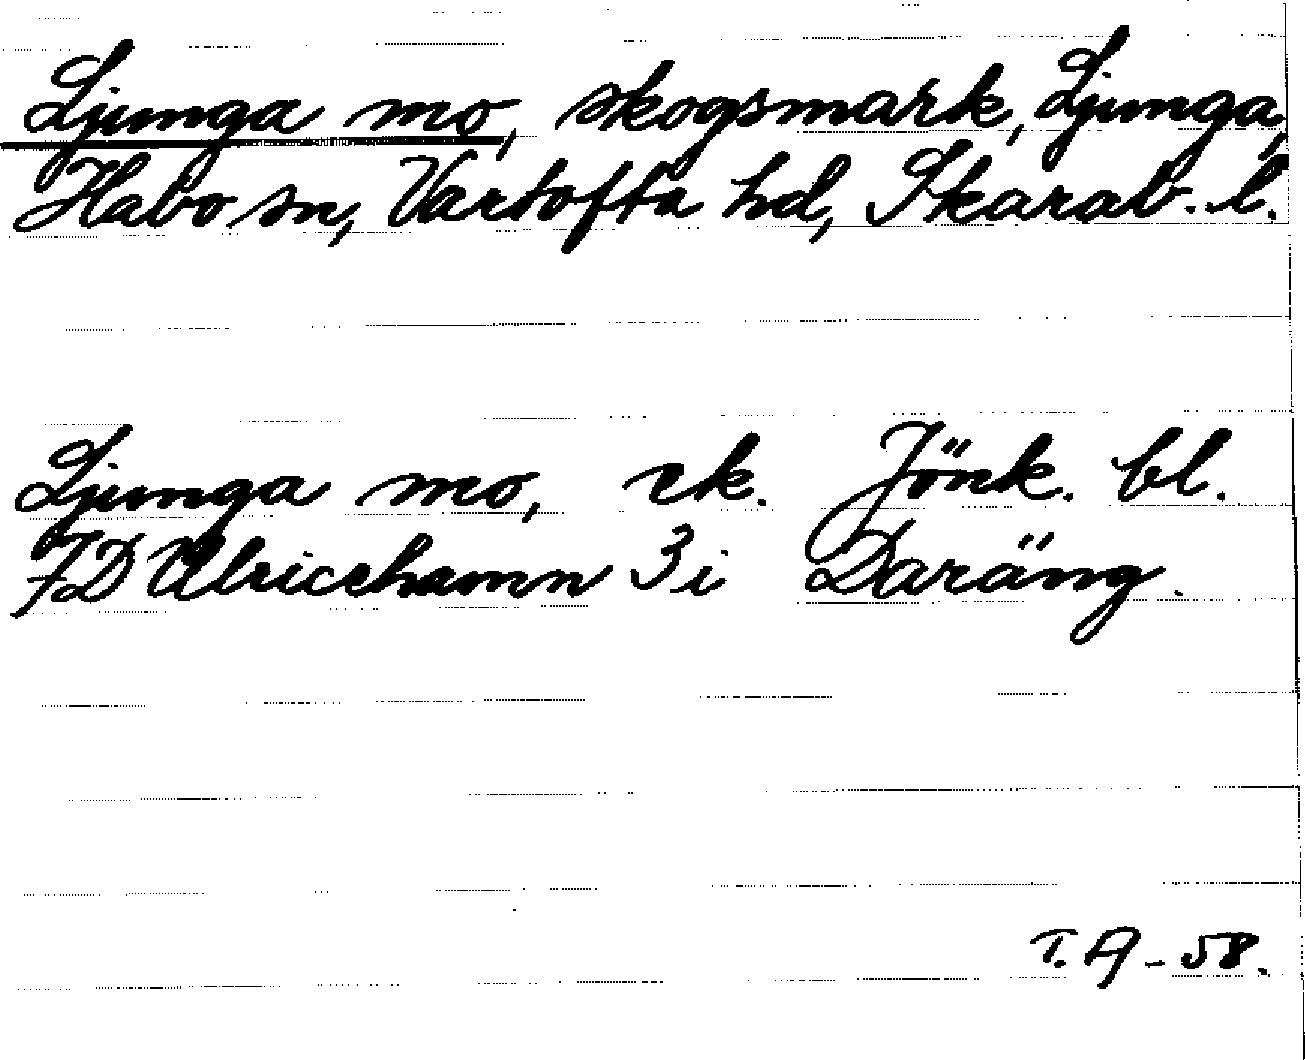 Ljunga mo, skogsmark, Ljunga,
Habo sn, Vartofta hd, Skarab. l.
Ljunga mo, ek. Jönk. bl.
7D Ulricehamn 3i Daräng.
T. A - 58.